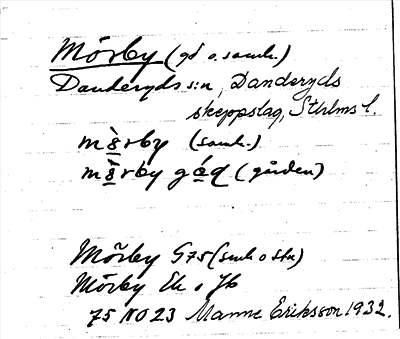 Mörby (gd o. samh.)
Danderyds s:n, Danderyds
skeppslag, Sthlms l.
mö̀rby (samh.)
mö̀rby gá̱d (gården)
Mörby G75 (smh o stn)
Mörby Ek o Jb
75 NO 23 Manne Eriksson 1932.